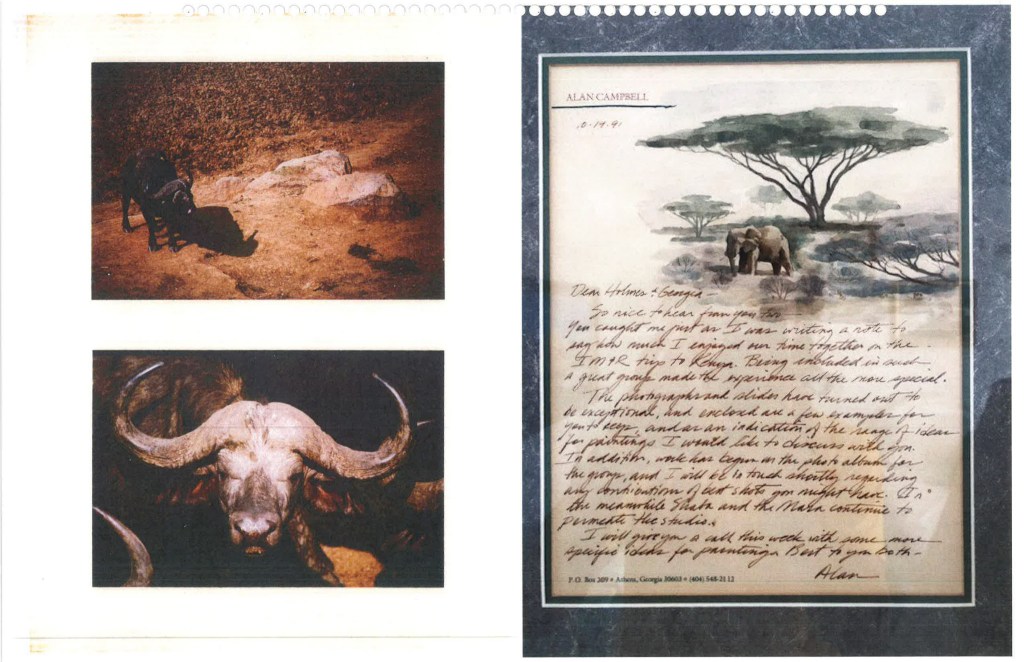 ALAN CAMPBELL
10-19-91
Dear Holmes & Georgia –
So nice to hear from you two –
You caught me just as I was writing a note to
say how much I enjoyed our time together on the
IM&R trip to Kenya. Being included in such
a great group made the experience all the more special.
The photographs and slides have turned out to
be exceptional, and enclosed are a few examples for
you to keep, and as an indication of the range of ideas
for paintings I would like to discuss with you.
In addition, work has begun on the photo album for
the group, and I will be in touch shortly regarding
any contribution of best shots you might have. In
the meanwhile Shaba and the Mara continue to
permeate the studio.
I will give you a call this week with some more
specific ideas for paintings. Best to you both –
Alan
P.O. Box 309 • Athens, Georgia 30603 • (404) 548-2112